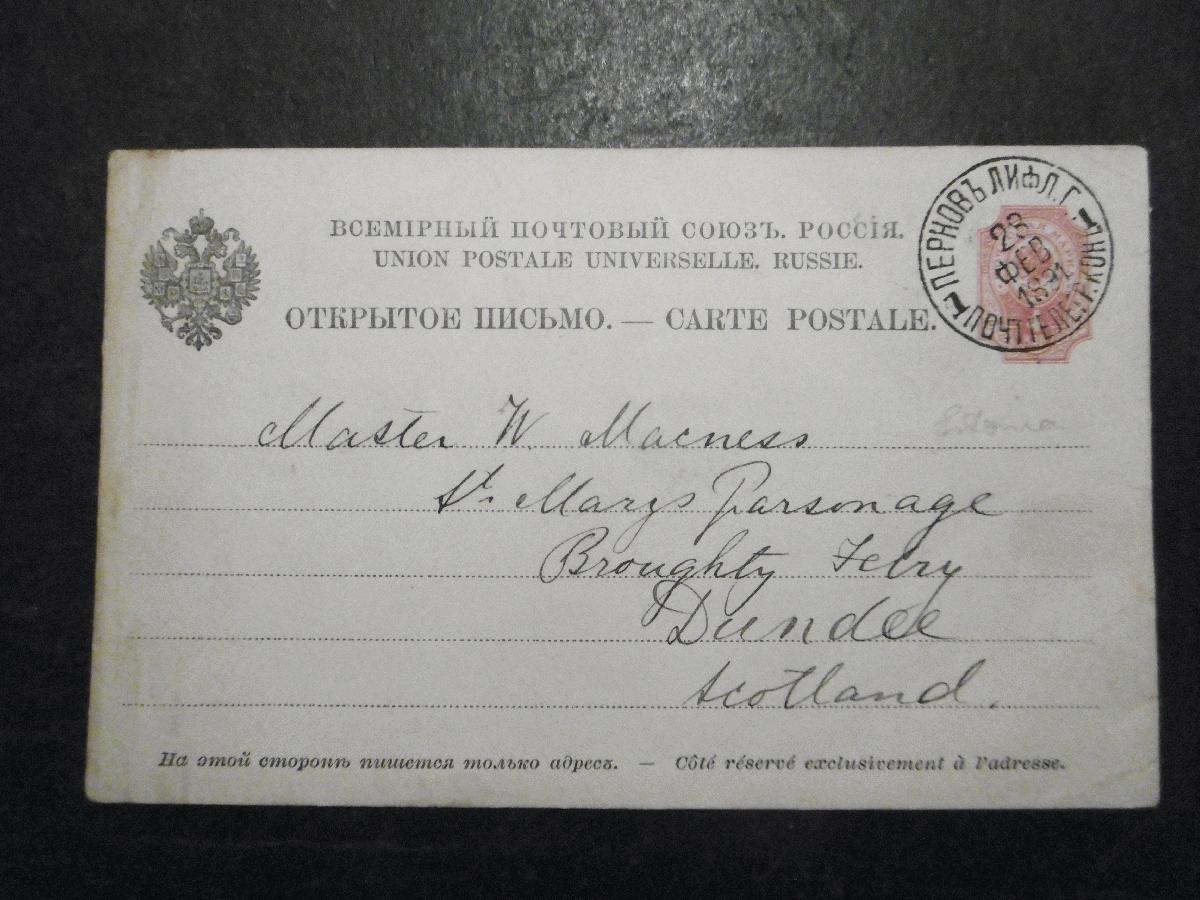 ВСЕМІРНЫЙ ПОЧТОВЫЙ СОЮЗЪ. РОССІЯ.
UNION POSTALE UNIVERSELLE. RUSSIE.
ОТКРЫТОЕ ПИСЬМО. — CARTE POSTALE.
ПЕРНОВЪ ЛИФЛ. Г.
28
ФЕВ
1891
ПОЧТ. ТЕЛЕГР. КОНТ.
Estonia
Master W Macness
St. Marys Parsonage
Broughty Ferry
Dundee
Scotland.
На этой сторонѣ пишется только адресъ. — Côté réservé exclusivement à l'adresse.